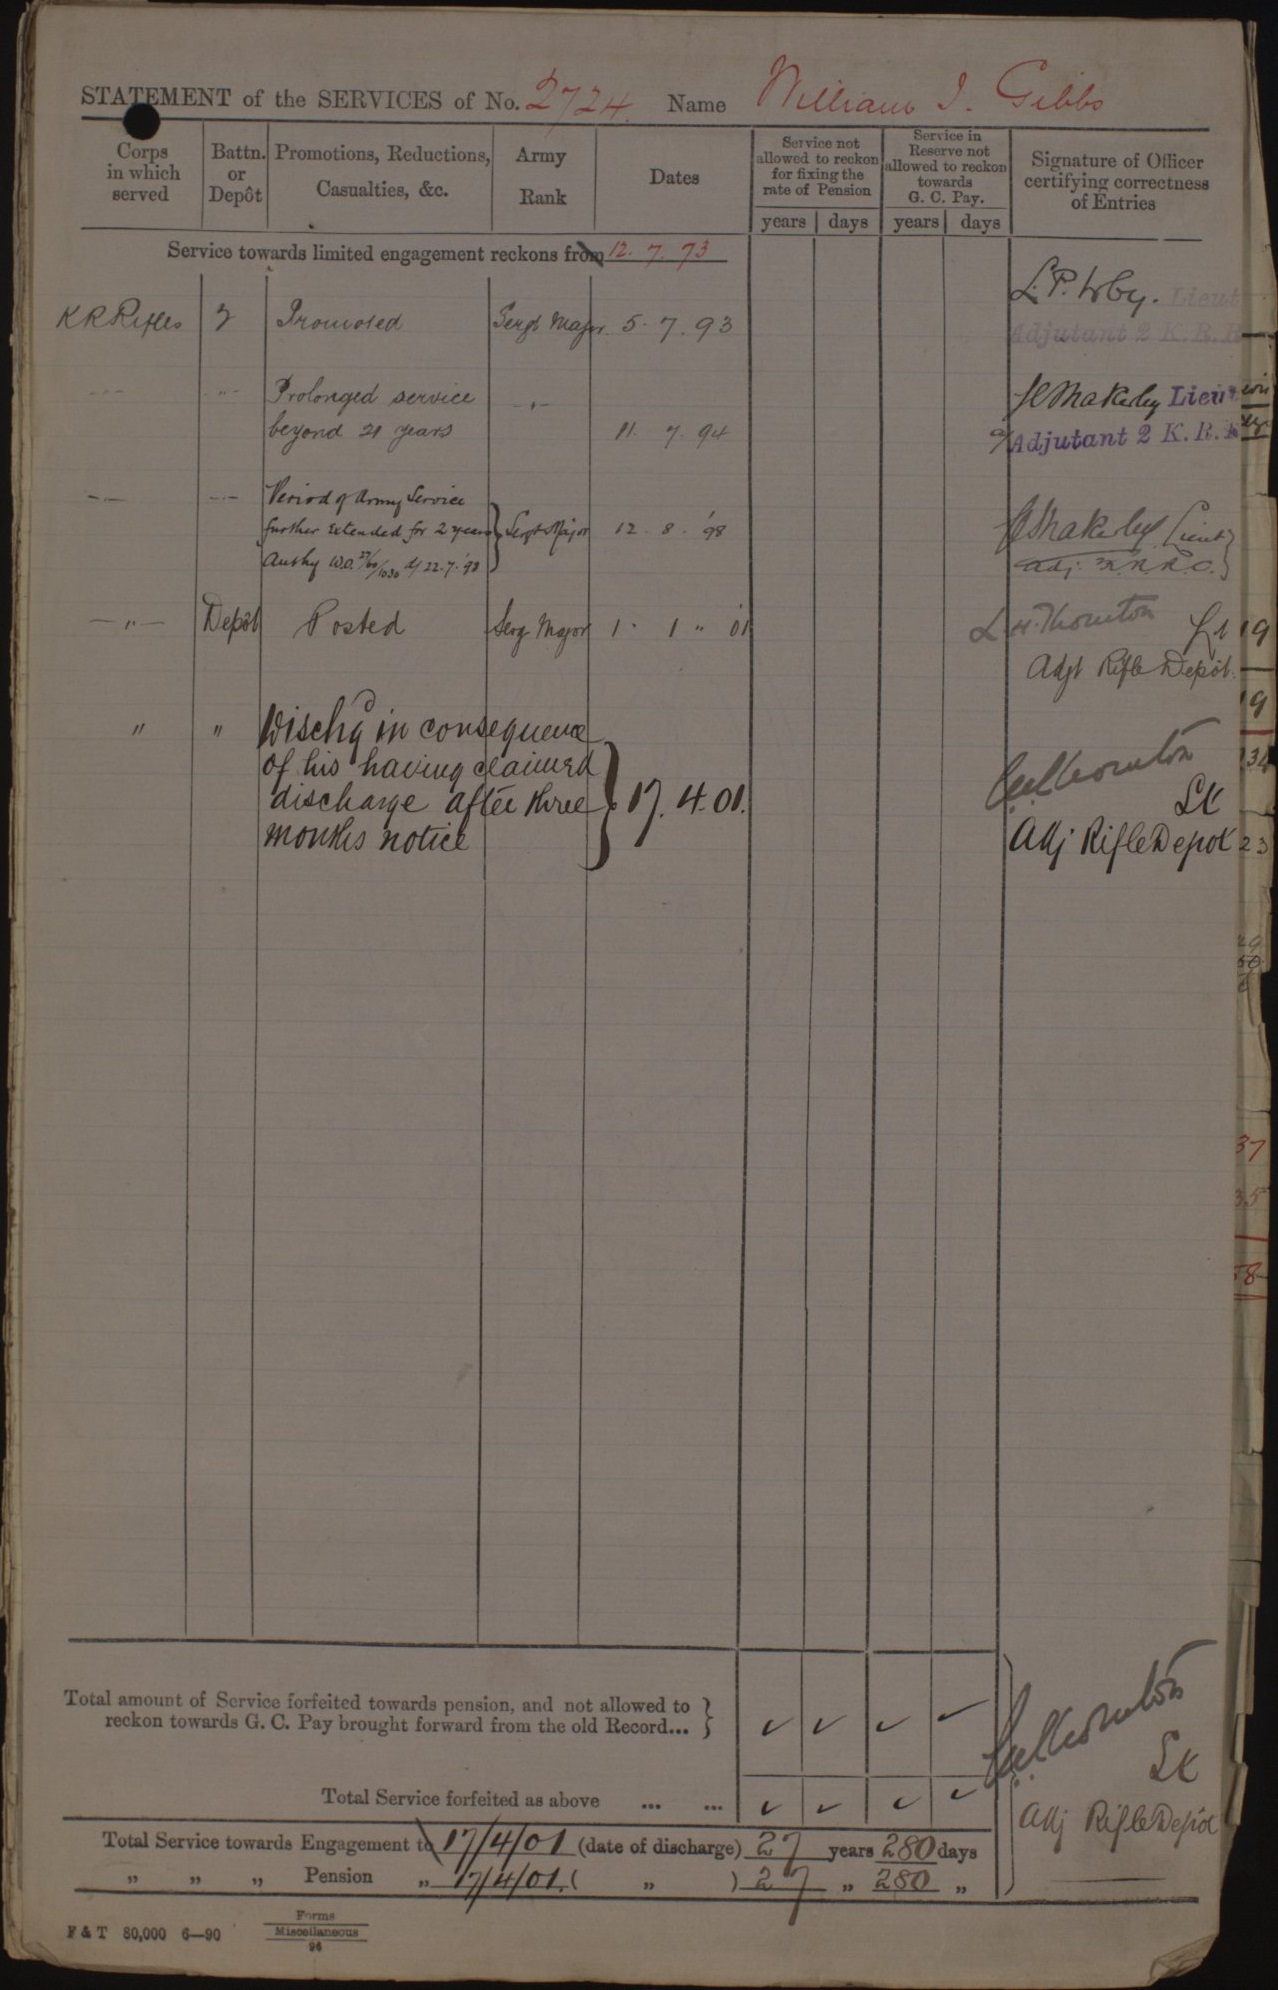 STATEMENT of the SERVICES of No. 2724. Name William J. Gibbs
Corps in which served
Battn. or Depôt
Promotions, Reductions, Casualties, &c.
Army Rank
Dates
Service not allowed to reckon for fixing the rate of Pension
Service in Reserve not allowed to reckon towards G. C. Pay.
Signature of Officer certifying correctness of Entries
years days years days
Service towards limited engagement reckons from 12. 7. 73
KR Rifles 2 Promoted Sergt Major 5. 7. 93
Lieut
Adjutant 2 K. R. R
Prolonged service
beyond 21 years -"- 11. 7. 94
Lieut
a/Adjutant 2 K. R. R
Period of Army Service
further Extended for 2 years } Sergt Major 12. 8. '98
Authy W.O. 27/60/1030 d/ 22.7.'98
Lieut }
Adj.
-"- Depôt Posted Serg Major 1 " 1 " 01
Thornton Lt
Adjt Rifle Depôt.
" " Disch'd in consequence
of his having claimed
discharge after three } 17. 4. 01.
months notice
Thornton
Lt
Adj Rifle Depot
Total amount of Service forfeited towards pension, and not allowed to
reckon towards G. C. Pay brought forward from the old Record... }
Total Service forfeited as above ... ...
Thornton
Lt
Adj Rifle Depot
Total Service towards Engagement to 17/4/01 (date of discharge) 27 years 280 days
„ „ „ Pension „ 17/4/01. ( „ ) 27 „ 280 „
F & T 80,000 6—90
Forms
Miscellaneous
96